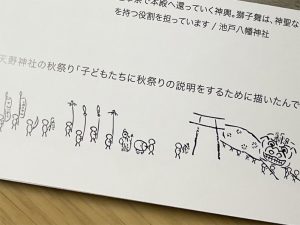 で本殿へ還っていく神輿。獅子舞は、神聖な
を持つ役割を担っています / 池戸八幡神社
天野神社の秋祭り「子どもたちに秋祭りの説明をするために描いたんで